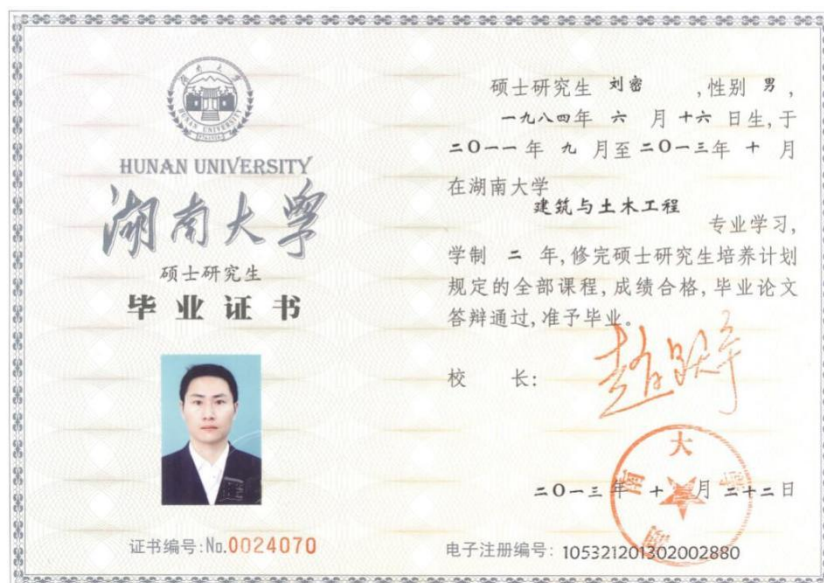 湖南大学
HUNAN UNIVERSITY
HUNAN UNIVERSITY
湖南大学
硕士研究生
毕业证书
证书编号:No.0024070
硕士研究生 刘密 ,性别 男 ,
一九八四年 六 月 十六 日生,于
二〇一一年 九 月至 二〇一三年 十 月
在湖南大学
建筑与土木工程
专业学习,
学制 二 年,修完硕士研究生培养计划
规定的全部课程,成绩合格,毕业论文
答辩通过,准予毕业。
校 长:
赵跃宇
湖南大学
二〇一三年 十 月 二十二日
电子注册编号: 105321201302002880